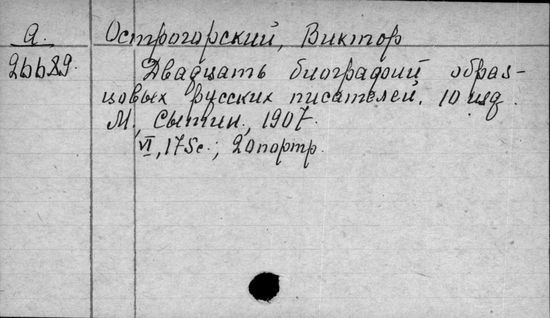 А.
26689.
Острогорский, Виктор
Двадцать биографий образ-
цовых русских писателей. 10 изд.
М., Сытин, 1907.
VI, 175с.; 20портр.